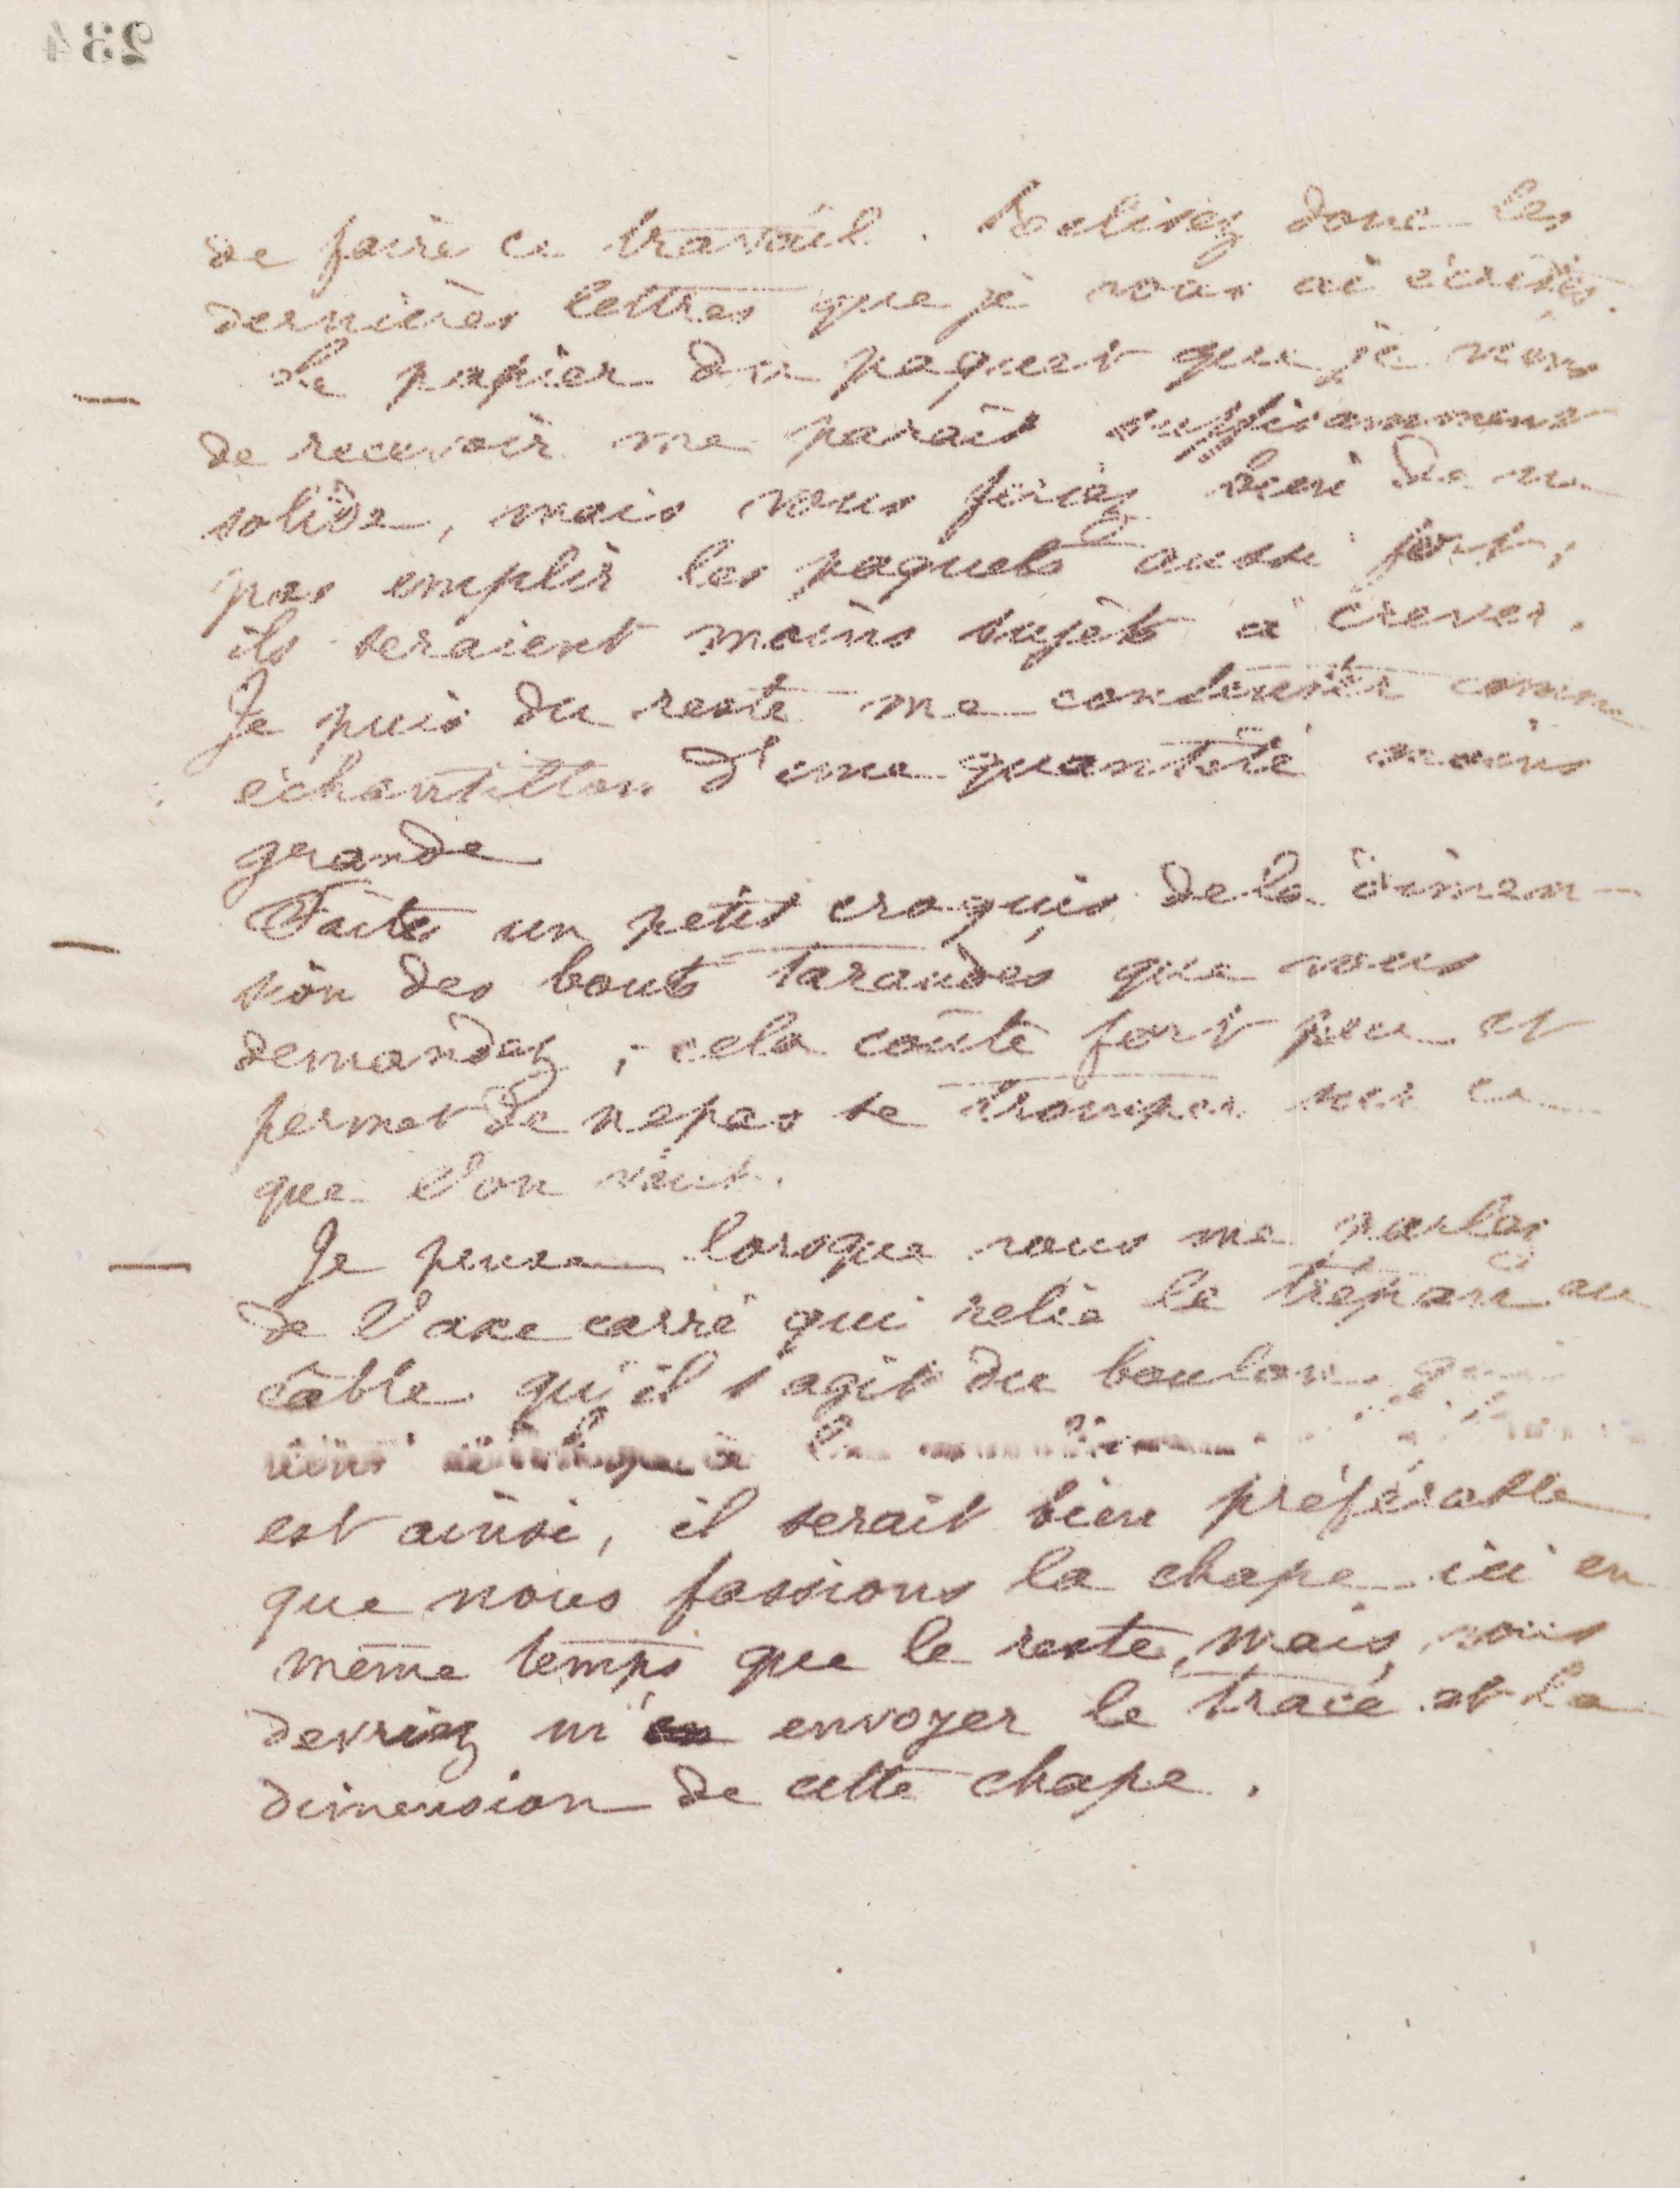 234
de faire ce travail. Relisez donc les
dernières lettres que je vous ai écrites.
— Le papier du paquet que je viens
de recevoir me parait suffisamment
solide, mais vous feriez bien de ne
pas emplir les paquets aussi fort,
ils seraient moins sujets à crever.
Je puis du reste me contenter comme
échantillon d'une quantité moins
grande
— Faites un petit croquis de la dimen-
sion des bouts taraudés que vous
demandez, cela coûte fort peu et
permet de ne pas se tromper sur ce
que l'on veut.
— Je pense lorsque vous me parlez
de l'axe carré qui relie le trépan au
câble qu'il s'agit du boulon qui
est ainsi, il serait bien préférable
que nous fassions la chape ici en
même temps que le reste, mais vous
devriez m' envoyer le tracé et la
dimension de cette chape.